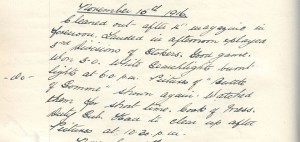 November 10th 1916.
Cleaned out after 4" magazine in
forenoon. Landed in afternoon & played
3rd divisions of Stokers. Good game.
Won 3-0. White Searchlight burnt
-do- lights at 6.0 p.m. Picture of "Battle
of Somme" shown again. Watched
them for short time. Cook of Mess.
Duty Cut. Had to clear up after
Pictures at 10.30 p.m.